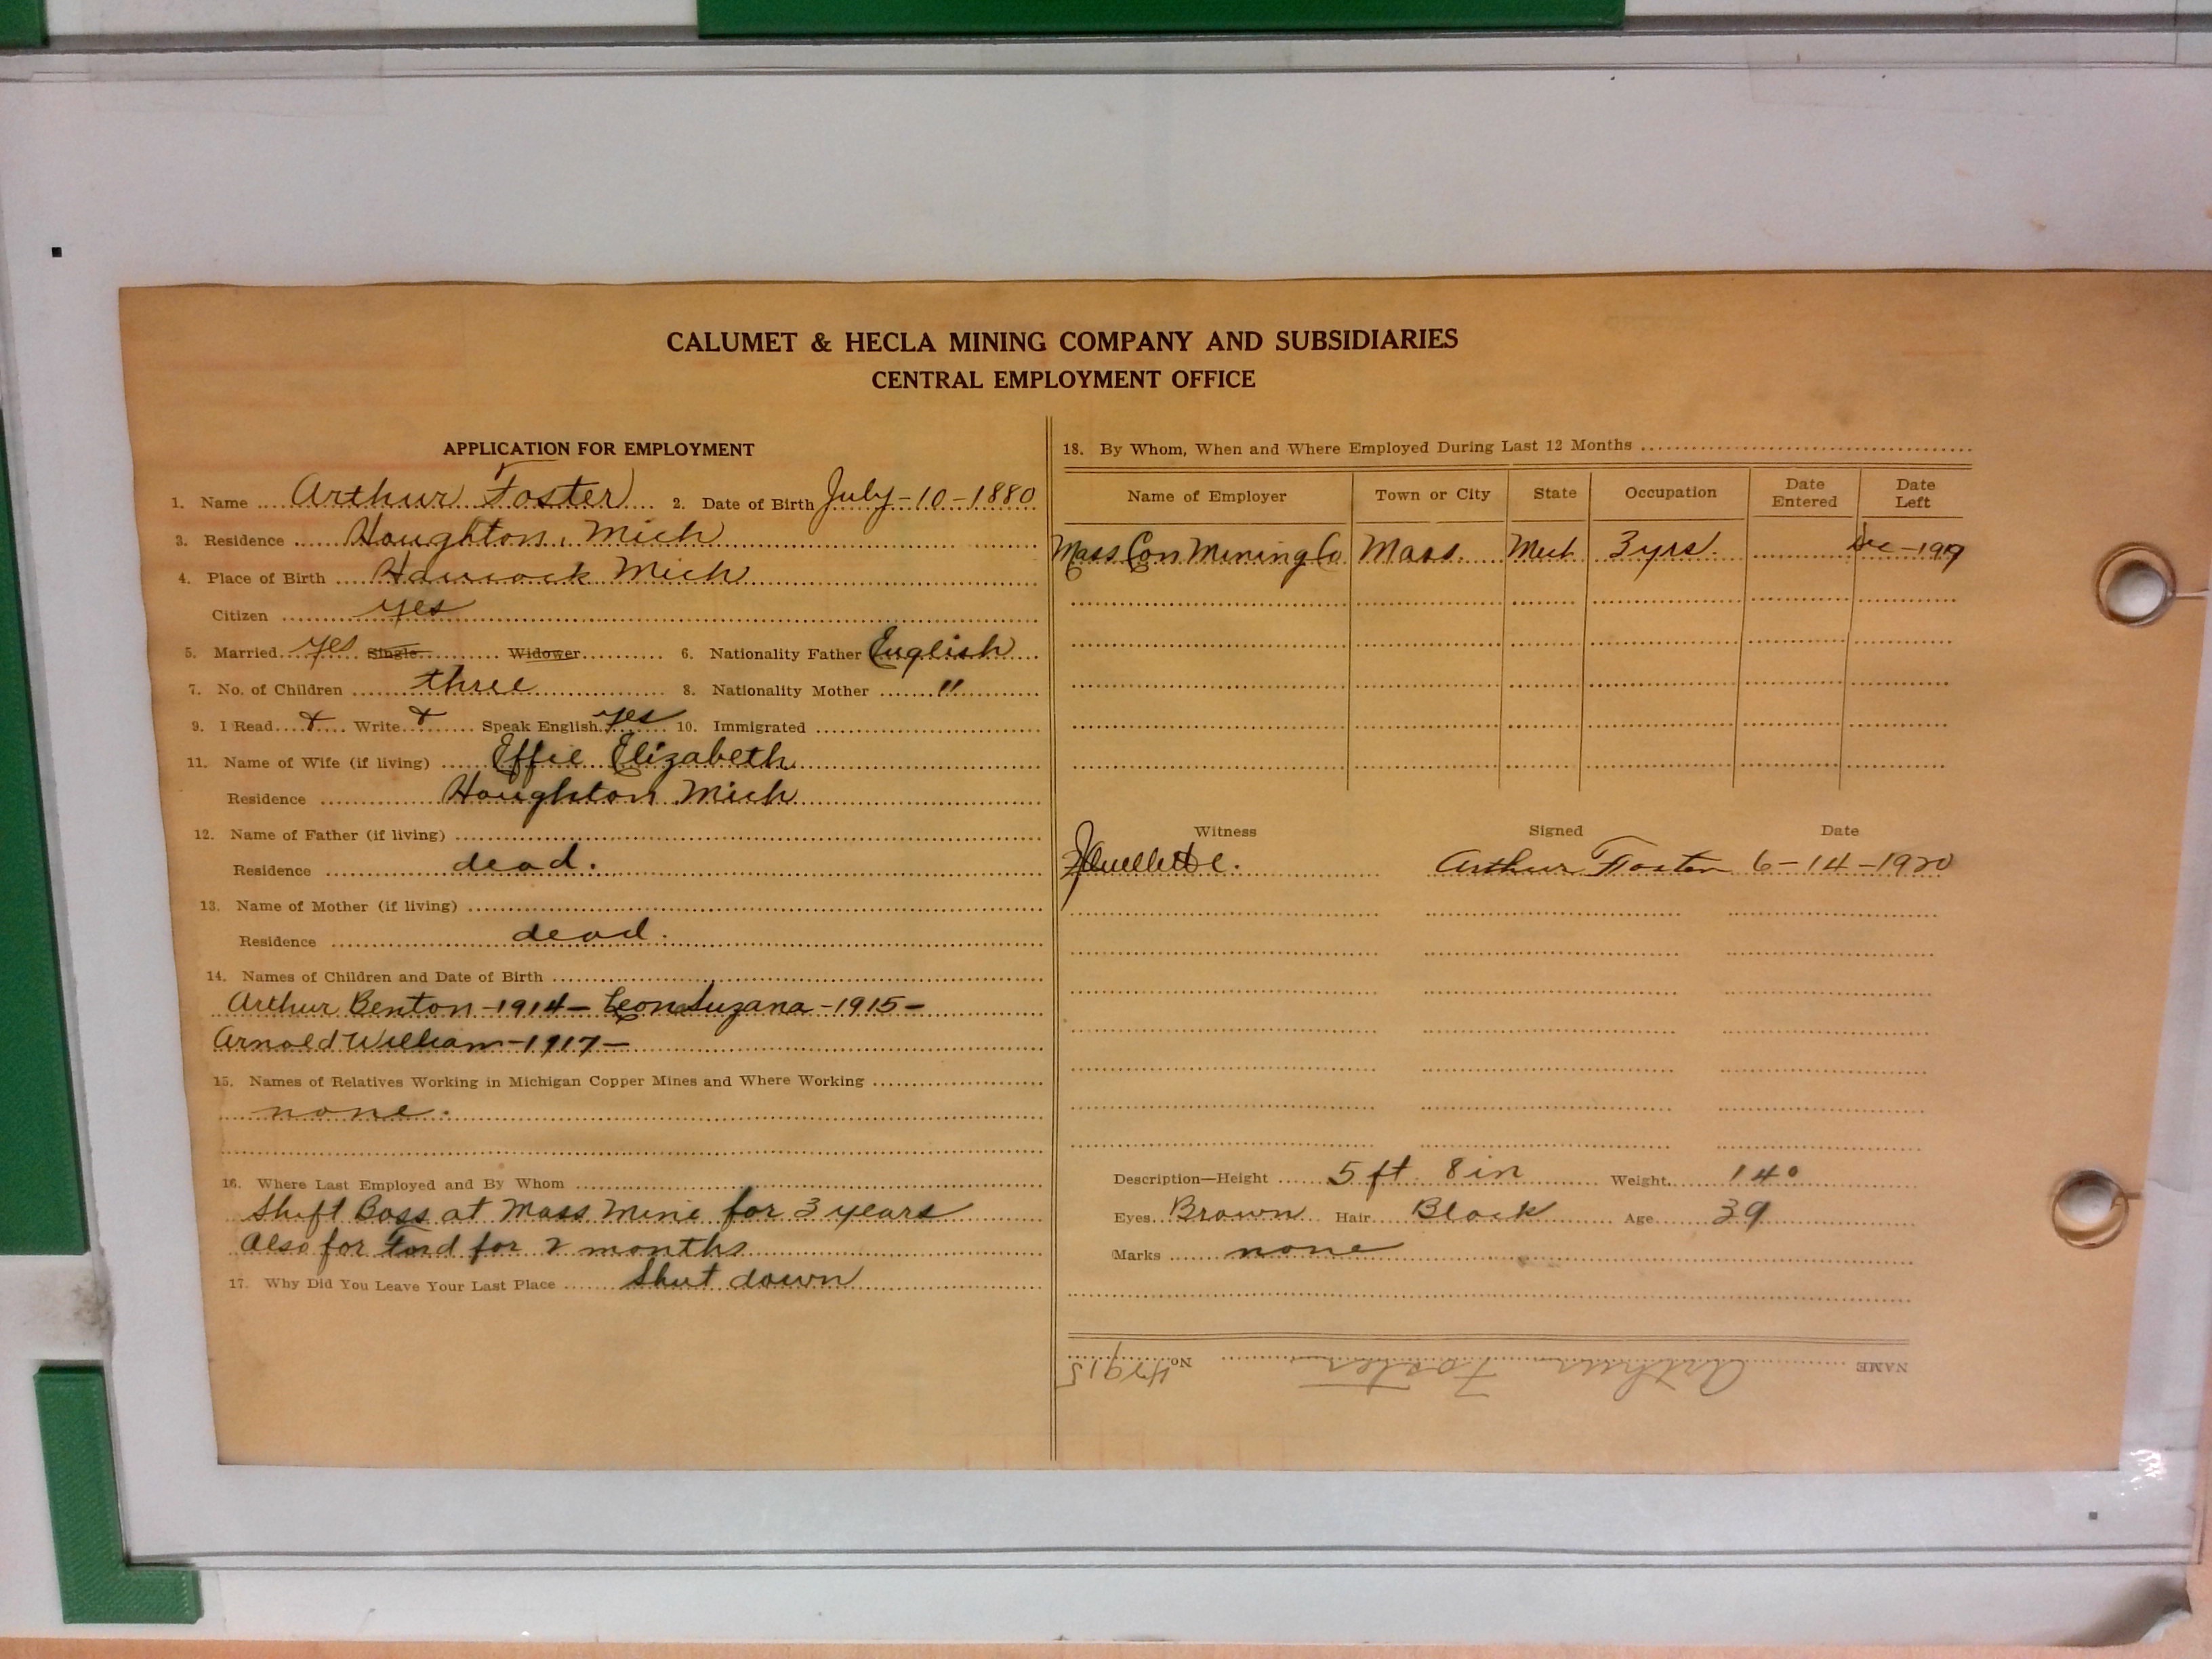 CALUMET & HECLA MINING COMPANY AND SUBSIDIARIES
CENTRAL EMPLOYMENT OFFICE
APPLICATION FOR EMPLOYMENT
1. Name Arthur Foster 2. Date of Birth July-10-1880
3. Residence Houghton, Mich
4. Place of Birth Hancock Mich
Citizen yes
5. Married yes Single Widower 6. Nationality Father English
7. No. of Children three 8. Nationality Mother "
9. I Read Write Speak English yes 10. Immigrated
11. Name of Wife (if living) Effie Elizabeth
Residence Houghton Mich
12. Name of Father (if living)
Residence dead.
13. Name of Mother (if living)
Residence dead.
14. Names of Children and Date of Birth
Arthur Benton-1914- Leon Suzana-1915-
Arnold William-1917-
15. Names of Relatives Working in Michigan Copper Mines and Where Working
none.
16. Where Last Employed and By Whom
Shift Boss at Mass Mine for 3 years
Also for Ford for 2 months
17. Why Did You Leave Your Last Place Shut down
18. By Whom, When and Where Employed During Last 12 Months
Name of Employer Town or City State Occupation Date Entered Date Left
Mass Con Mining Co Mass. Mich 3 yrs. Dec-1919
Witness Signed Date
Arthur Foster 6-14-1920
Description—Height 5 ft. 8 in Weight 140
Eyes Brown Hair Black Age 39
Marks none
NAME Arthur Foster No. 47915